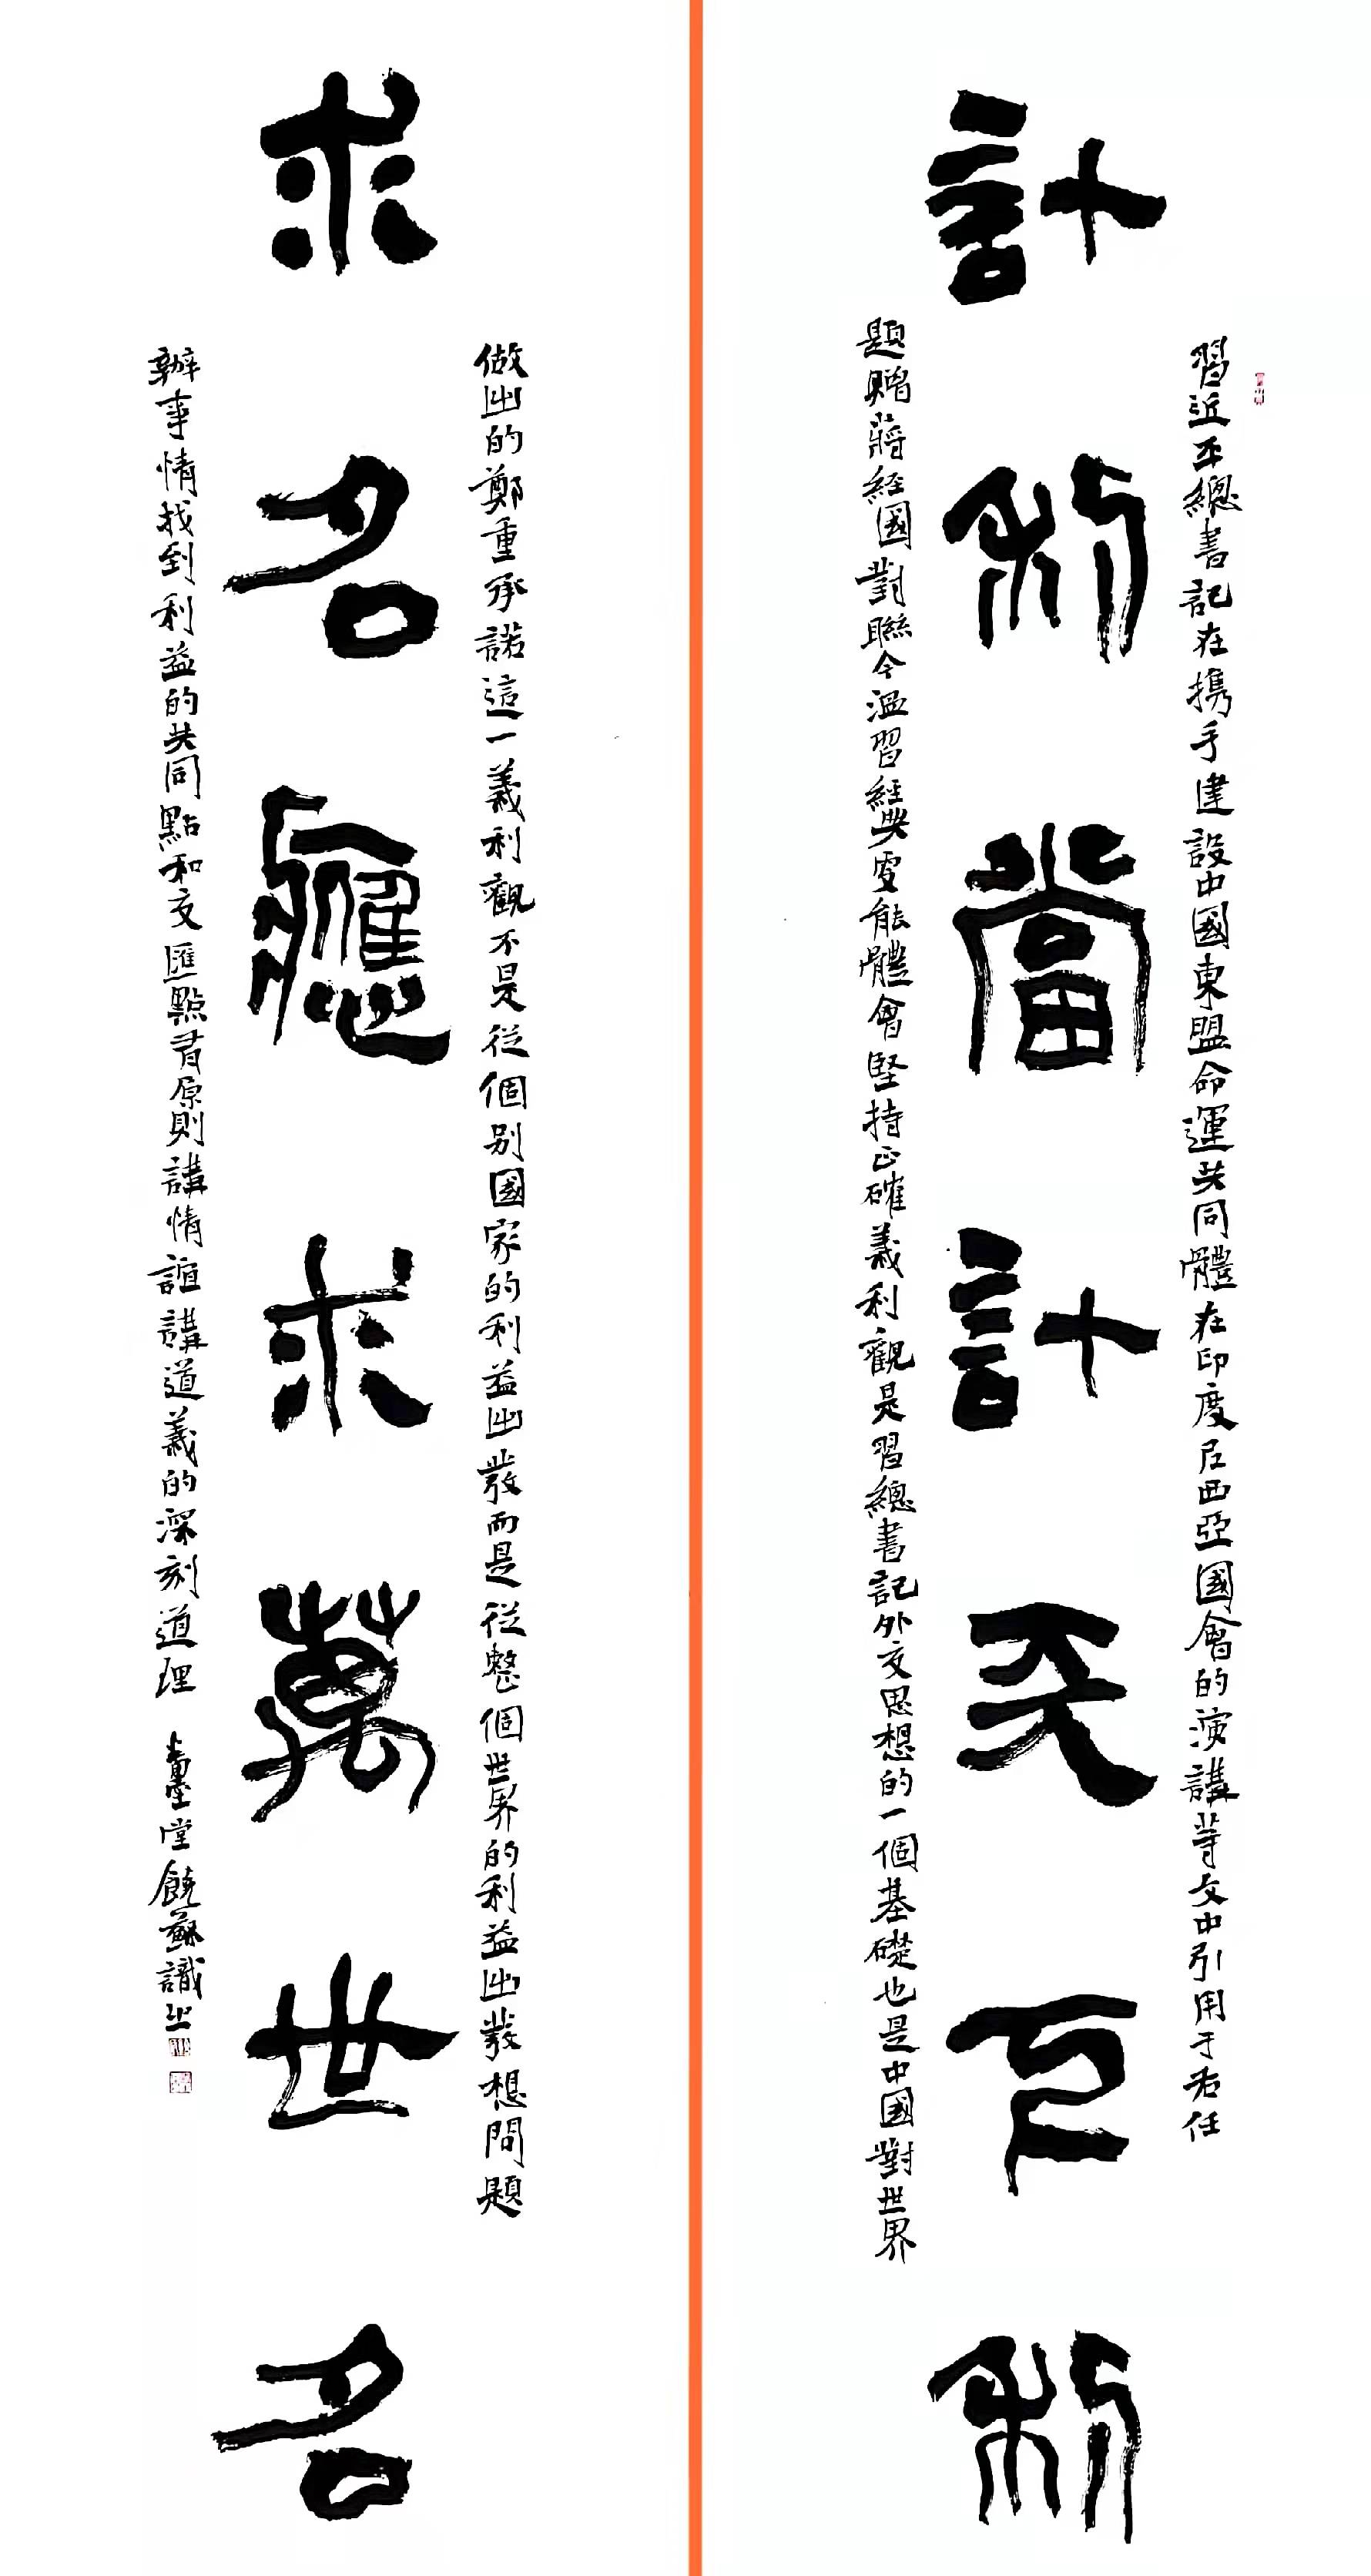 計利當計天下利
習近平總書記在携手建設中國東盟命運共同體在印度尼西亞國會的演講等文中引用于右任
題贈蔣經國對聯今溫習經典更能體會堅持正確義利觀是習總書記外交思想的一個基礎也是中國對世界
求名應求萬世名
做出的鄭重承諾這一義利觀不是從個别國家的利益出發而是從整個世界的利益出發想問題
辦事情找到利益的共同點和交匯點有原則講情誼講道義的深刻道理 堂饒蘇識之